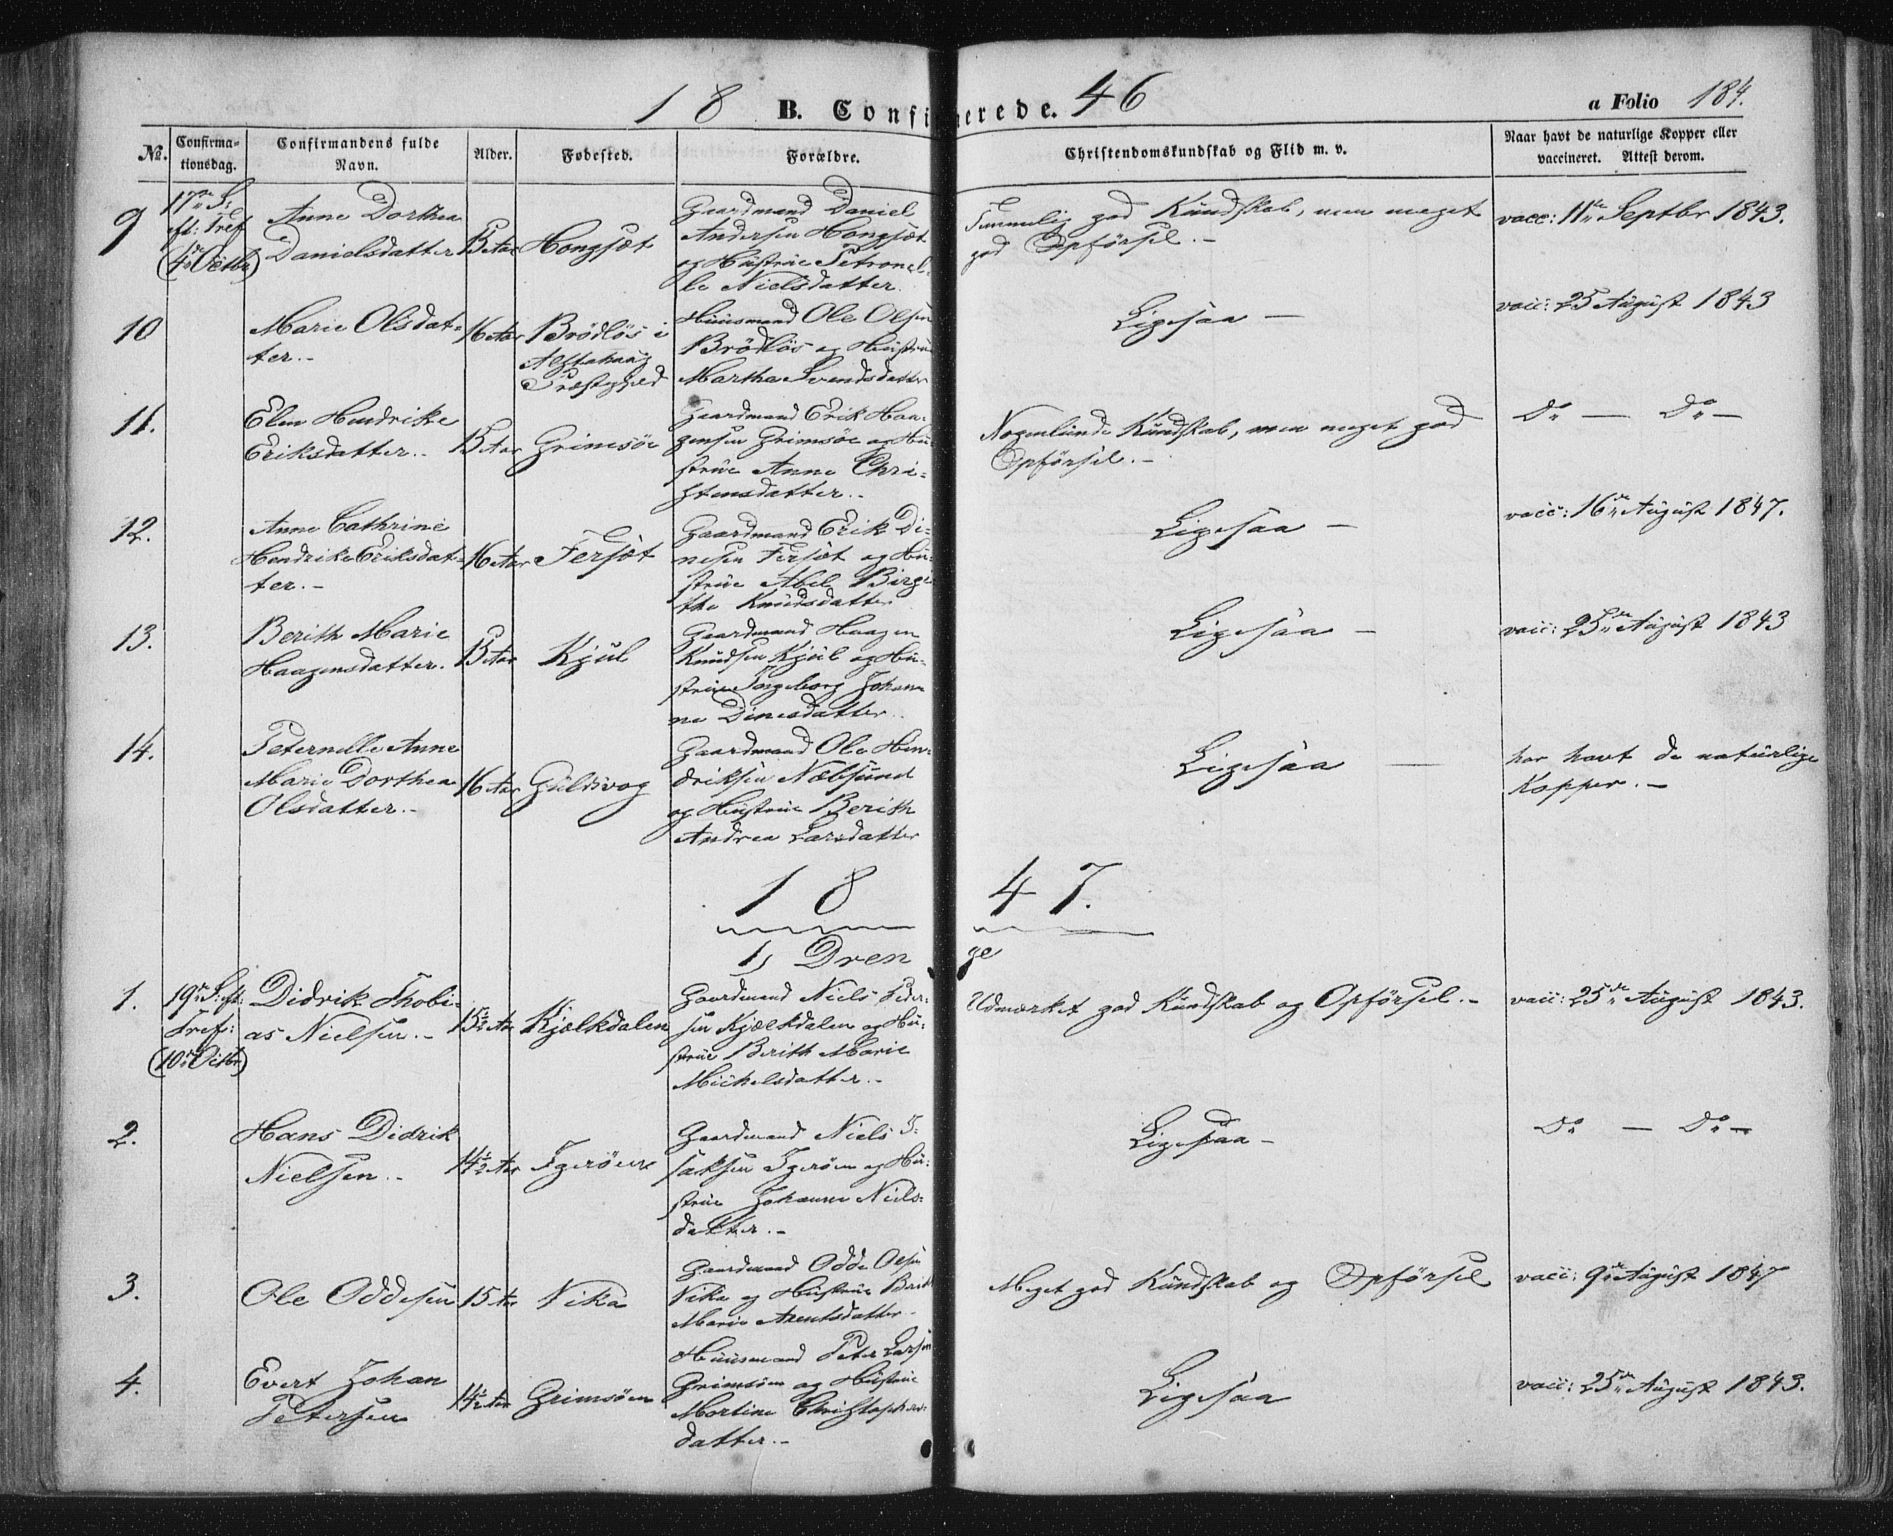 18 B. Confirmerede. 46 a Folio 184.
No. Confirmationsdag. Confirmandens fulde Navn. Alder. Fødested. Forældre. Christendomskundskab og Flid m. v. Naar havt de naturlige Kopper eller vaccineret. Attest derom.
9 17de S: eft: Tref (4de Octbr)
Anne Dorthea
Danielsdatter
15 Aar
Hongsæt
Gaardmand Daniel
Andersen Hongsæt
og Hustrue Petronel-
le Nielsdatter.
Temmelig god Kundskab, men meget
god Opførsel.-
vacc: 11te Septbr 1843.
10
Marie Olsdat-
ter.-
16 Aar
Brødløs i
Alstahaug
Præstegjeld
Huusmand Ole Olsen
Brødløs og Hustrue
Martha Svendsdatter
Ligesaa -
vacc: 25 August 1843
11.
Elen Hendrikke
Eriksdatter.-
15 Aar
Grimsøe
Gaardmand Erik Haa-
gensen Grimsøe og Hu-
strue Anne Chri-
stensdatter.-
Nogenlunde Kundskab, men meget god
Opførsil.-
Do - Do -
12.
Anne Cathrine
Hendrike Eriksdat-
ter.-
16 Aar
Fersæt
Gaardmand Erik Di-
nesen Fersæt og Hu-
strue Abel Birgi
the Knudsdatter
Ligesaa -
vacc: 16de August 1847.
13.
Berith Marie
Haagensdatter.
15 Aar
Kjul
Gaardmand Haagen
Knudsen Kjul og Hu-
strue Ingeborg Johan
ne Dinesdatter.
Ligesaa -
vacc: 25de August 1843
14.
Peternelle Anne
Marie Dorthea
Olsdatter.-
16 Aar
Guldvog
Gaardmand Ole Hen-
driksen Næbsund
og Hustrue Berith
Andrea Larsdatter
Ligesaa -
har havt de naturlige
Kopper.-
18 47.
1) Drenge
1. 19de S: eft: Tref: (10de Octbr)
Didrik Thobi-
as Nielsen.-
15½ Aar
Kjælkdalen
Gaardmand Niels Peder-
sen Kjælkdalen og Hu-
strue Berith Marie
Michelsdatter.-
Udmærket god Kundskab og Opførsel.-
vacc: 25de August 1843.
2.
Hans Didrik
Nielsen.-
14½ Aar
Igerøen
Gaardmand Niels I-
saksen Igerøen og Hu-
strue Johanne Niels-
datter.-
Ligesaa -
Do - Do -
3.
Ole Oddesen
15 Aar
Vika
Gaardmand Odde Olsen
Vika og Hustrue Berit
Marie Arentsdatter
Meget god Kundskab og Opførsel
vacc: 9de August 1847
4.
Evert Johan
Petersen
14½ Aar
Grimsøen
Huusmand Peter Larsen
Grimsøen og Hustrue
Martine Christophers-
datter.-
Ligesaa
vacc: 25de August 1843.